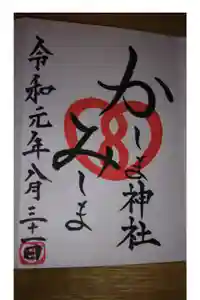 かしま神社
みしま
令和元年八月三十一日